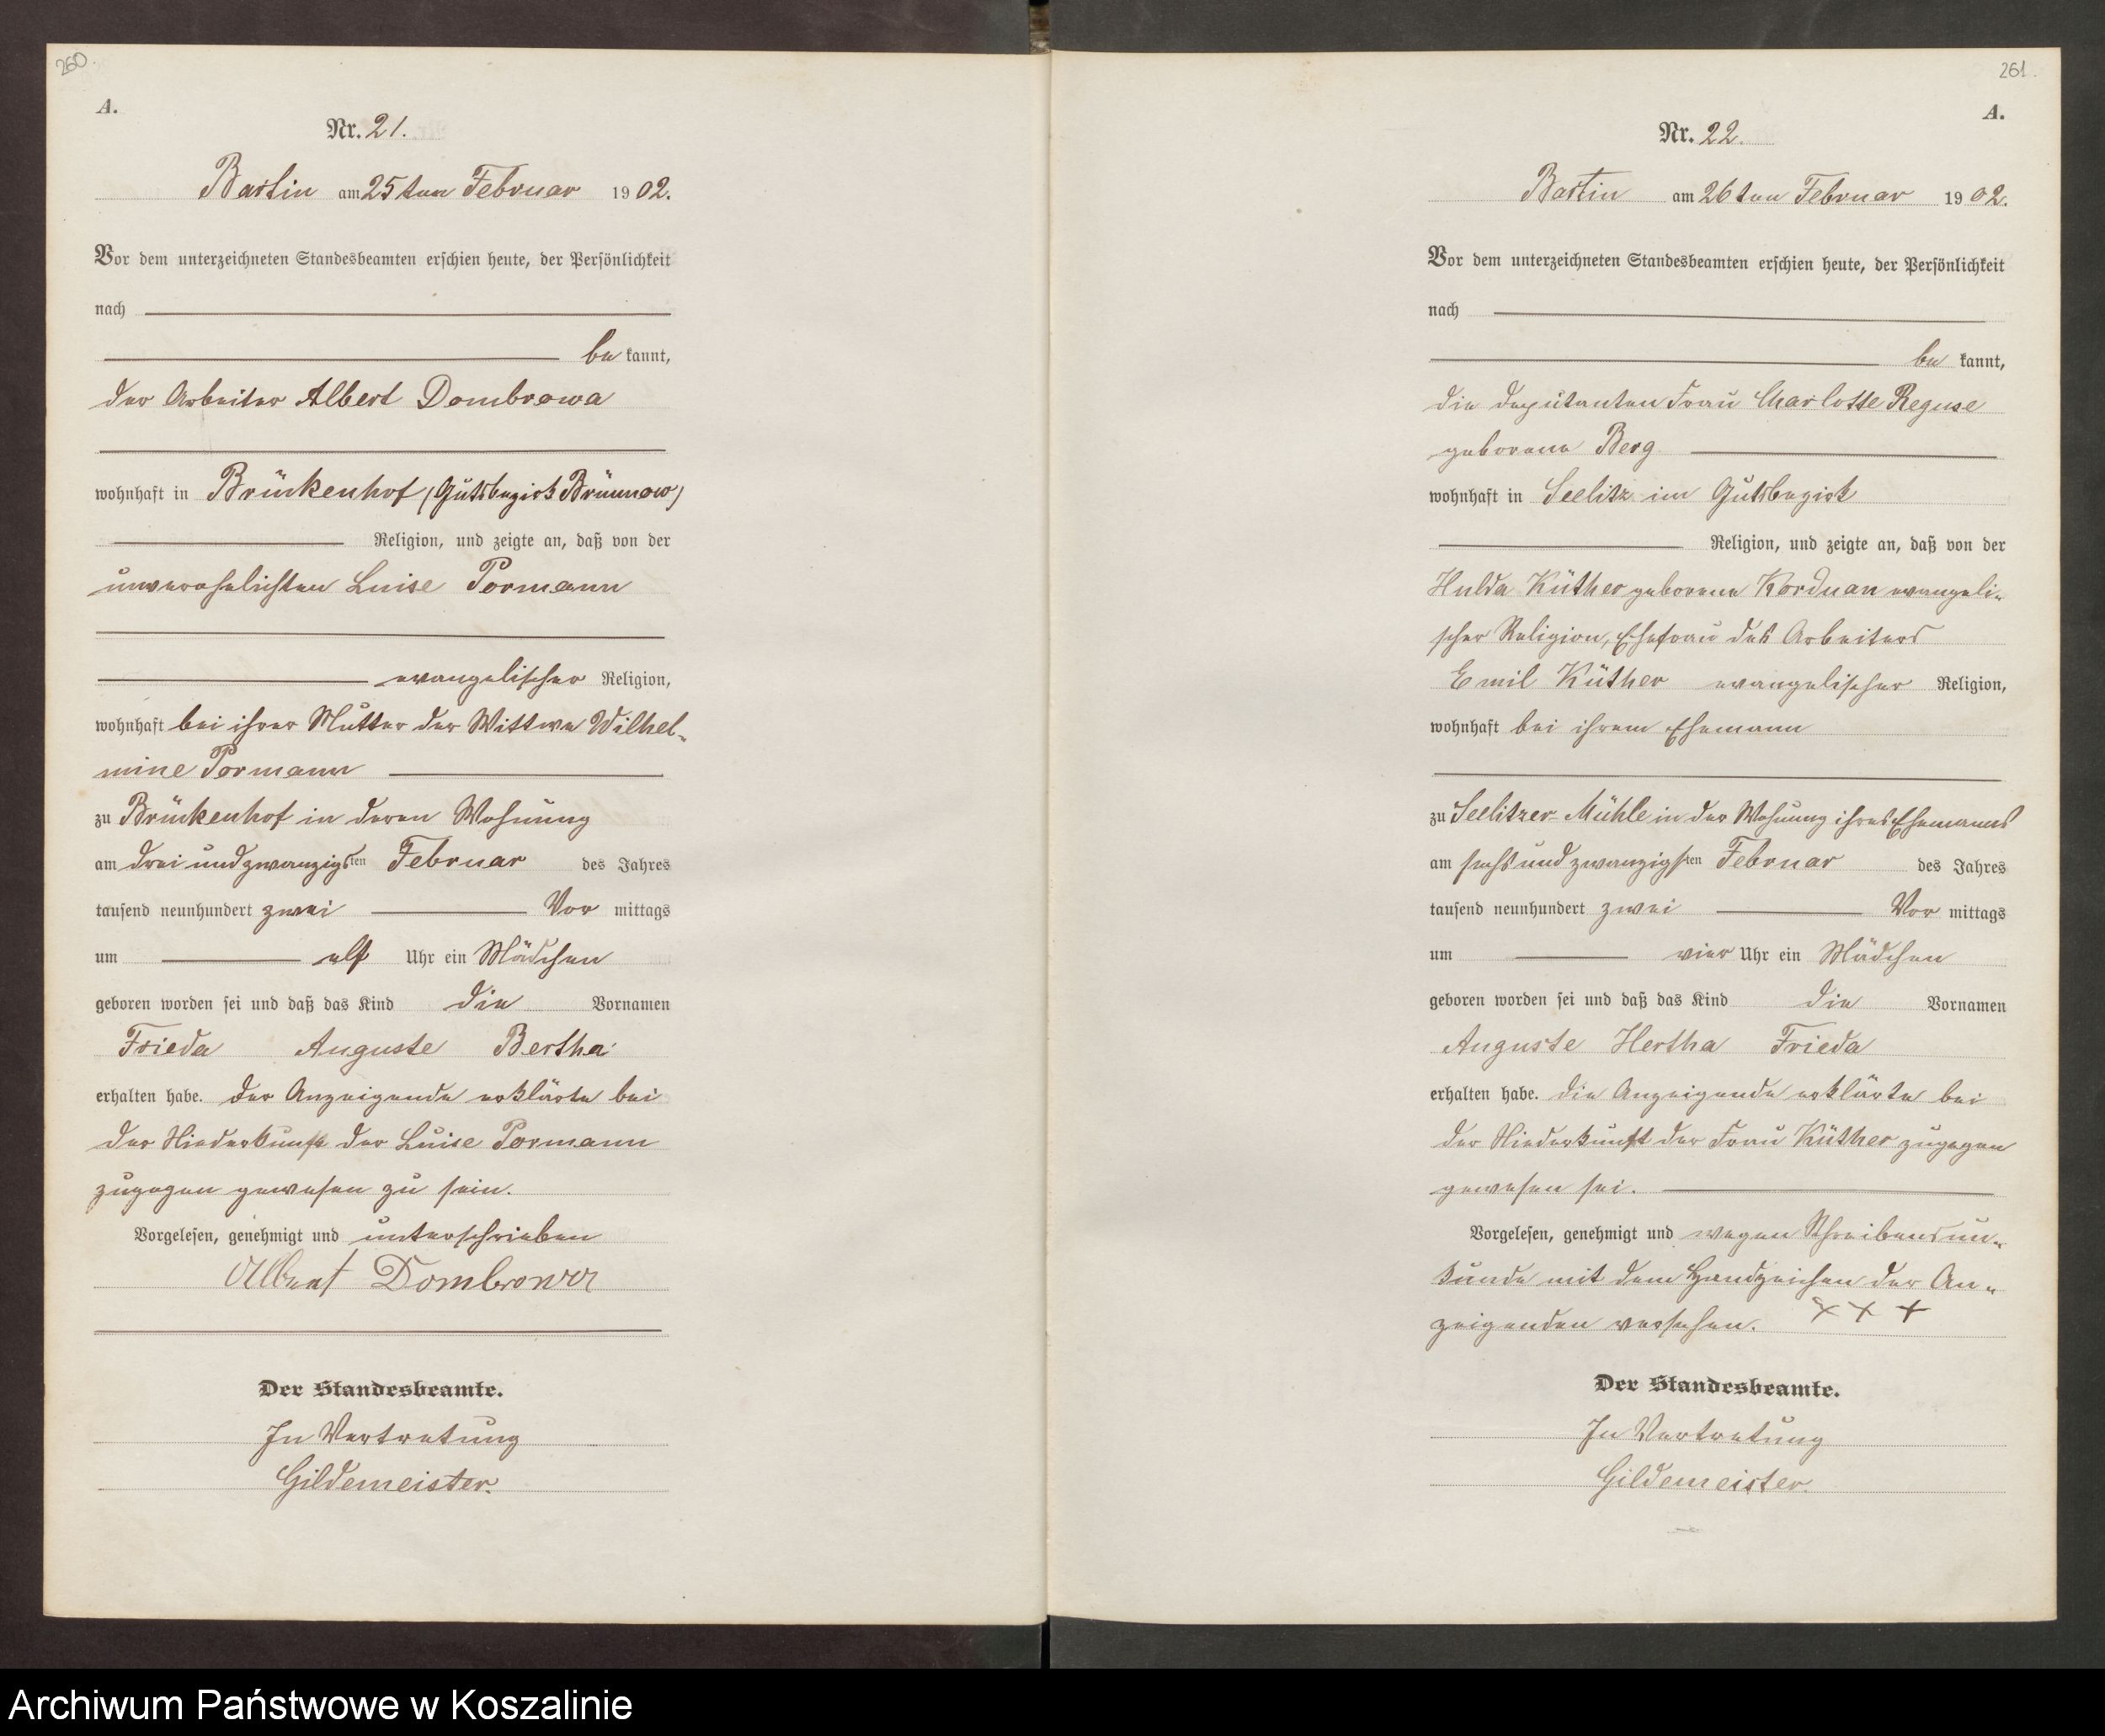 260.
A.
Nr. 21.
Bartin am 25ten Februar 1902.
Vor dem unterzeichneten Standesbeamten erschien heute, der Persönlichkeit
nach
be kannt,
der Arbeiter Albert Dombrowa
wohnhaft in Brückenhof (Gutsbezirk Brünnow)
Religion, und zeigte an, daß von der
unverehelichten Luise Pormann
evangelischer Religion,
wohnhaft bei ihrer Mutter der Wittwe Wilhel-
mine Pormann
zu Brückenhof in deren Wohnung
am drei und zwanzigsten Februar des Jahres
tausend neunhundert zwei Vor mittags
um elf Uhr ein Mädchen
geboren worden sei und daß das Kind die Vornamen
Frieda Auguste Bertha
erhalten habe. Der Anzeigende erklärte bei
der Niederkunft der Luise Pormann
zugegen gewesen zu sein.
Vorgelesen, genehmigt und unterschrieben
Albert Dombrowa
Der Standesbeamte.
In Vertretung
Gildemeister.
261.
A.
Nr. 22.
Bartin am 26ten Februar 1902.
Vor dem unterzeichneten Standesbeamten erschien heute, der Persönlichkeit
nach
be kannt,
die Deputanten Frau Charlotte Reguse
geborene Berg
wohnhaft in Seelitz im Gutsbezirk
Religion, und zeigte an, daß von der
Hulda Küther geborene Korduan evangeli-
scher Religion, Ehefrau des Arbeiters
Emil Küther evangelischer Religion,
wohnhaft bei ihrem Ehemann
zu Seelitzer Mühle in der Wohnung ihres Ehemannes
am sechs und zwanzigsten Februar des Jahres
tausend neunhundert zwei Vor mittags
um vier Uhr ein Mädchen
geboren worden sei und daß das Kind die Vornamen
Auguste Hertha Frieda
erhalten habe. Die Anzeigende erklärte bei
der Niederkunft der Frau Küther zugegen
gewesen sei.
Vorgelesen, genehmigt und wegen Schreibensun-
kunde mit dem Handzeichen der An-
zeigenden versehen. + + +
Der Standesbeamte.
In Vertretung
Gildemeister.
Archiwum Państwowe w Koszalinie